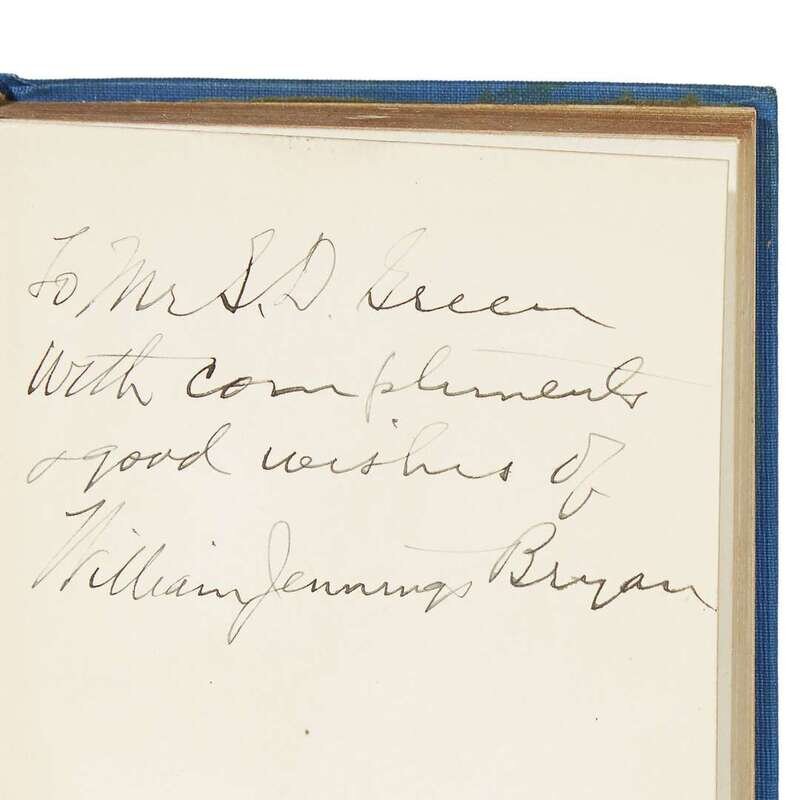 To Mr S. D. Green
With compliments
& good wishes of
William Jennings Bryan